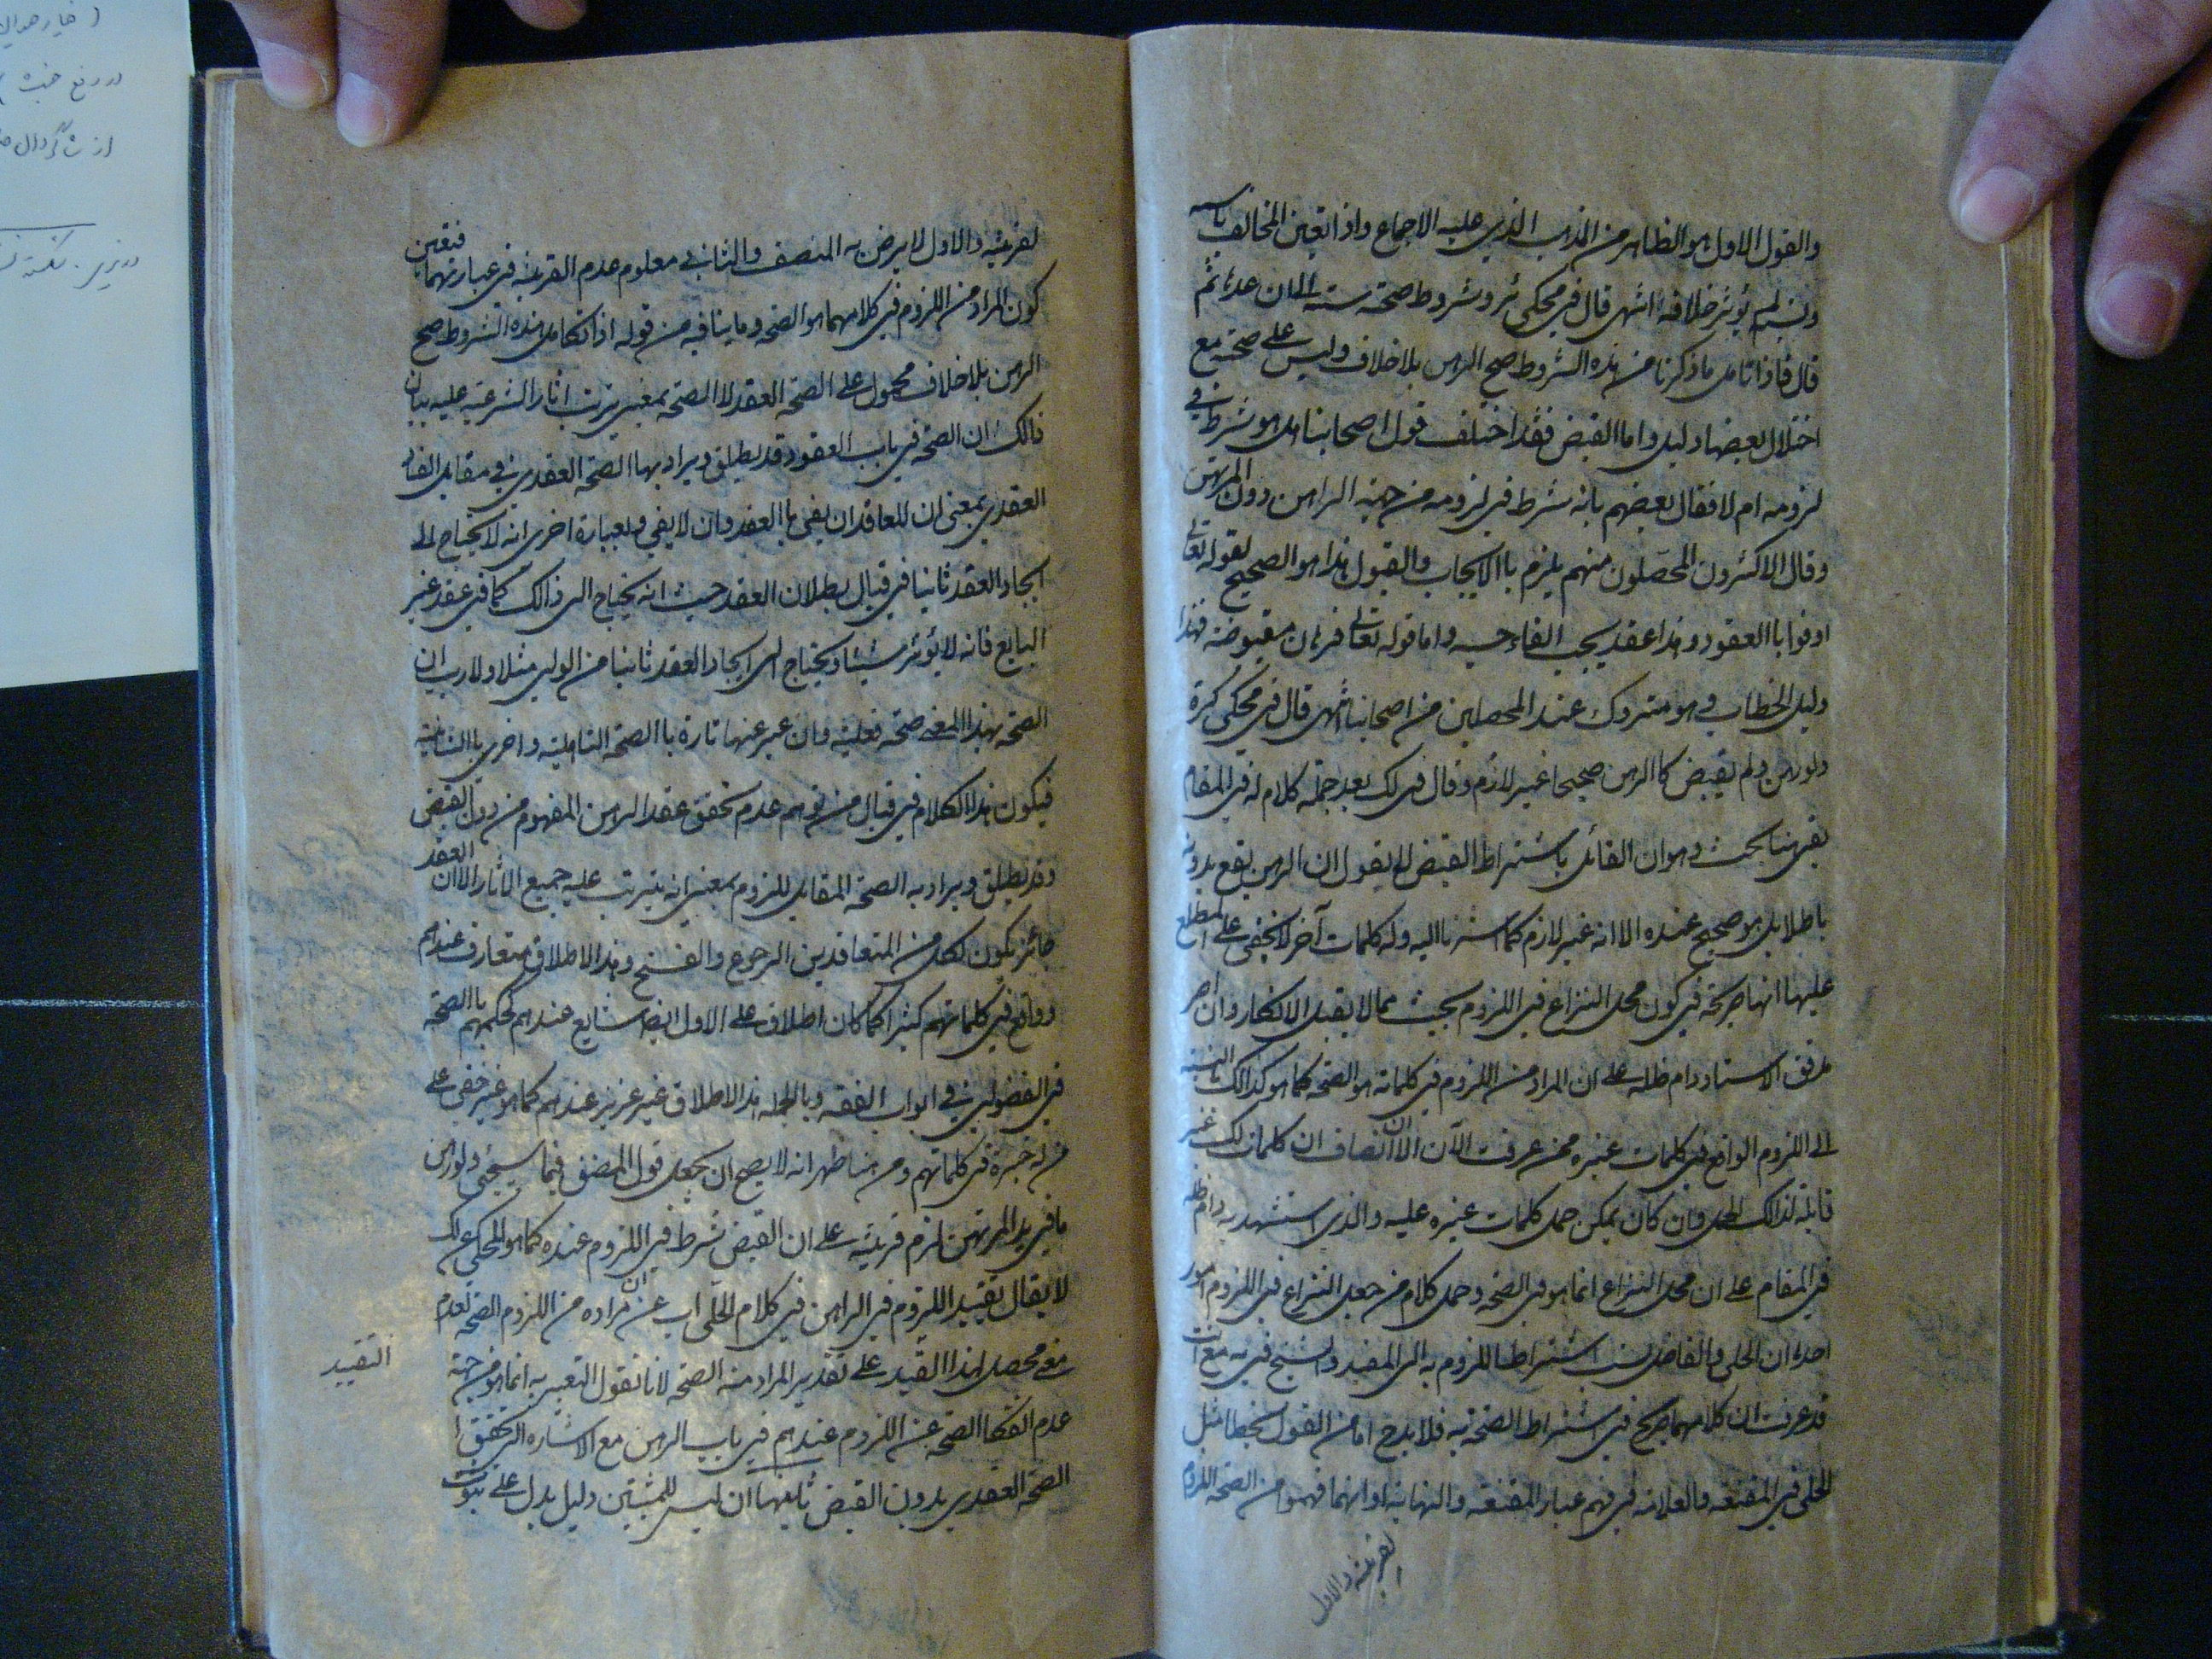 والقول الاول هو الظاهر من المذهب الذي عليه الاجماع واذا تعين المخالف باسمه
ونسبه لم يؤثر خلافه انتهى قال في محكى ئر وشروط صحته ستة الى ان عدها ثم
قال فاذا تكامل ما ذكرنا من هذه الشروط صح الرهن بلا خلاف وليس على صحته مع
اختلال بعضها دليل واما القبض فقد اختلف قول اصحابنا هل هو شرط في
لزومه ام لا فقال بعضهم بانه شرط في لزومه من جهة الراهن دون المرتهن
وقال الاكثرون المحصلون منهم يلزم بالايجاب والقبول هذا هو الصحيح لقوله تعالى
اوفوا بالعقود وهذا عقد يجب الفاء به واما قوله تعالى فرهان مقبوضة فهذا
دليل الخطاب وهو متروك عند المحصلين من اصحابنا انتهى قال في محكى كرة
ولو رهن ولم يقبض كان الرهن صحيحا غير لازم وقال في لك بعد جملة كلام له في المقام
بقى هنا بحث وهو ان القائل باشتراط القبض لا يقول ان الرهن يقع بدونه
باطلا بل هو صحيح عنده الا انه غير لازم كما اشرنا اليه وله كلمات آخر لا يخفى على المطلع
عليها انها صريحة في كون محل النزاع في اللزوم بحيث مما لا يقبل الانكار وان اصر
الاستاد دام ظله على ان المراد من اللزوم في كلماته هو الصحة كما هو كذالك بالنسبة
الى اللزوم الواقع في كلمات غيره ممن عرفت الآن الا ان الانصاف ان كلمات لك غير
قابلة لذالك الحمل وان كان يمكن حمل كلمات غيره عليه والذي استشهد به دام ظله
في المقام على ان محل النزاع انما هو في الصحة وحمل كلام من جعل النزاع في اللزوم امور
احدها ان الحلي والفاضل نسبا اشتراط اللزوم به الى المفيد والشيخ في يه مع انك
قد عرفت ان كلامهما صريح في اشتراط الصحة به فلا بد ح اما من القول بخطأ مثل
الحلي في المقنعة والعلامة في فهم عبارة المقنعة والنهاية او انهما فهموا من الصحة اللزوم
لقرينة والاول
لقرينة والاول لا يرضى به المنصف والثاني معلوم عدم القرينة في عبارتهما فتعين
كون المراد من اللزوم في كلامهما هو الصحة وما ينافيه من قوله اذا تكامل هذه الشروط صح
الرهن بلا خلاف محمول على الصحة العقد لا الصحة بمعنى ترتب اثار الشرعية عليه بيان
ذالك ان الصحة في باب العقود قد يطلق ويراد بها الصحة العقدي في مقابل الفساد
العقدي بمعنى ان للعاقد ان يفى باالعقد وان لا يفي وبعبارة اخرى انه لا يحتاج الى
ايجاد العقد ثانيا في قبال بطلان العقد حيث انه يحتاج الى ذالك كما في عقد غير
البالغ فانه لا يؤثر شيئا ويحتاج الى ايجاد العقد ثانيا من الولي مثلا ولا ريب ان
الصحة بهذا المعنى صحة فعلية وان عبر عنها تارة باالصحة التاهلية واخرى باالشانية
فيكون هذا الكلام في قبال من توهم عدم تحقق عقد الرهن المفهوم من دون القبض
وقد يطلق ويراد به الصحة المقابل للزوم بمعنى انه يترتب عليه جميع الاثار الا ان العقد
جائز يكون لكل من المتعاقدين الرجوع والفسخ وهذا الاطلاق متعارف عندهم
وواقع في كلماتهم كثيرا كما كان اطلاق على الاول ايضا شايع عندهم كحكمهم باالصحة
في الفضولي في ابواب الفقه وبالجملة هذا الاطلاق غير عزيز عندهم كما هو غير خفي على
من له خبرة في كلماتهم ومن هنا ظهر انه لا يصح ان يجعل قول المصنف فيما سيجئ ولو رهن
ما في يد المرتهن لزم قرينة على ان القبض شرط في اللزوم عنده كما هو المحكى عن لك
لا يقال تقييد اللزوم في الراهن في كلام الحلى اب عن ان مراده من اللزوم الصحة لعدم
معنى محصل لهذا القيد على تقدير المراد منه الصحة لانا نقول التعبير به انما هو من جهة
التقييد
عدم انفكاك الصحة عن اللزوم عندهم في باب الرهن مع الاشارة الى تحقق
الصحة العقدي بدون القبض ثانيها ان ليس للمثبتين دليل يدل على ثبوت